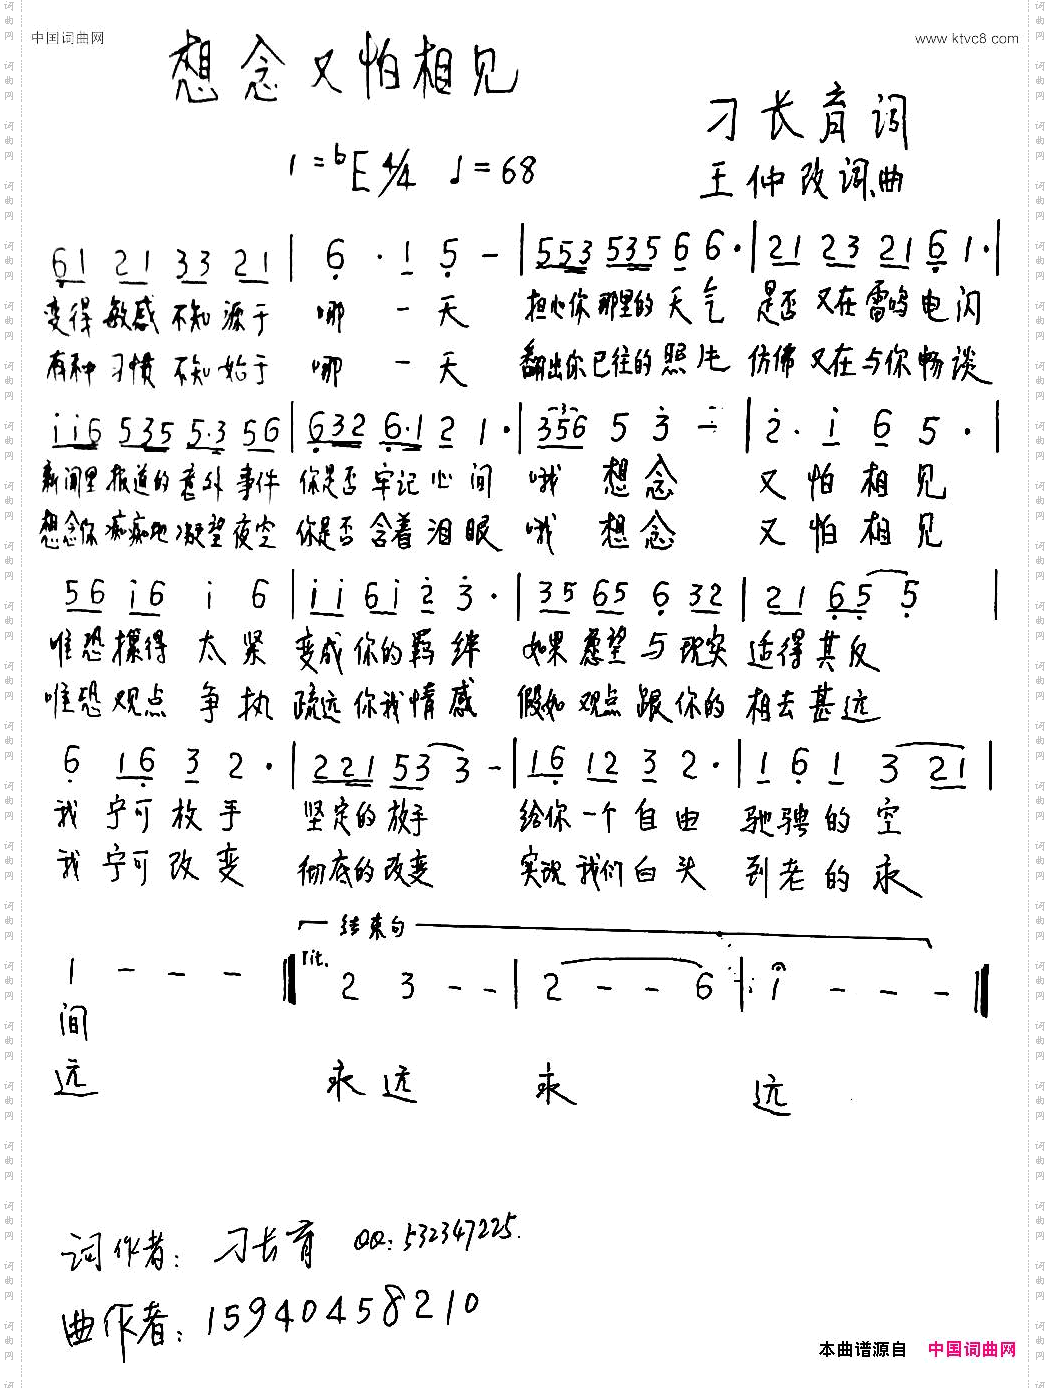 中国词曲网
www.ktvc8.com
想念又怕相见
刁长育词
1=bE 4/4 ♩=68
王仲改词、曲
61 21 33 21 | 6 · 1 5 - | 553 535 6 6· | 21 23 21 6 1· |
变得敏感不知源于 哪一天 担心你那里的天气 是否又在雷鸣电闪
有种习惯不知始于 哪一天 翻出你已往的照片 仿佛又在与你畅谈
i i 6 535 5·3 56 | 632 6·1 2 1· | 356 5 3 - | 2· i 6 5· |
新闻里报道的意外事件 你是否牢记心间 哦 想念 又怕相见
想念你痴痴地凝望夜空 你是否含着泪眼 哦 想念 又怕相见
56 i6 i 6 | i i 6i 2 3· | 35 65 6 32 | 21 65 5 |
唯恐攥得太紧 变成你的羁绊 如果愿望与现实 适得其反
唯恐观点争执 疏远你我情感 假如观点跟你的 相去甚远
6 16 3 2· | 221 53 3 - | 16 12 3 2· | 1 6 1 3 21 |
我宁可放手 坚定的放手 给你一个自由 驰骋的空
我宁可改变 彻底的改变 实现我们白头 到老的永
结束句
1 - - - || rit. 2 3 - - | 2 - - 6 | i - - - ||
间
远 永远 永 远
词作者：刁长育 QQ：532347225.
曲作者：15940458210
本曲谱源自 中国词曲网